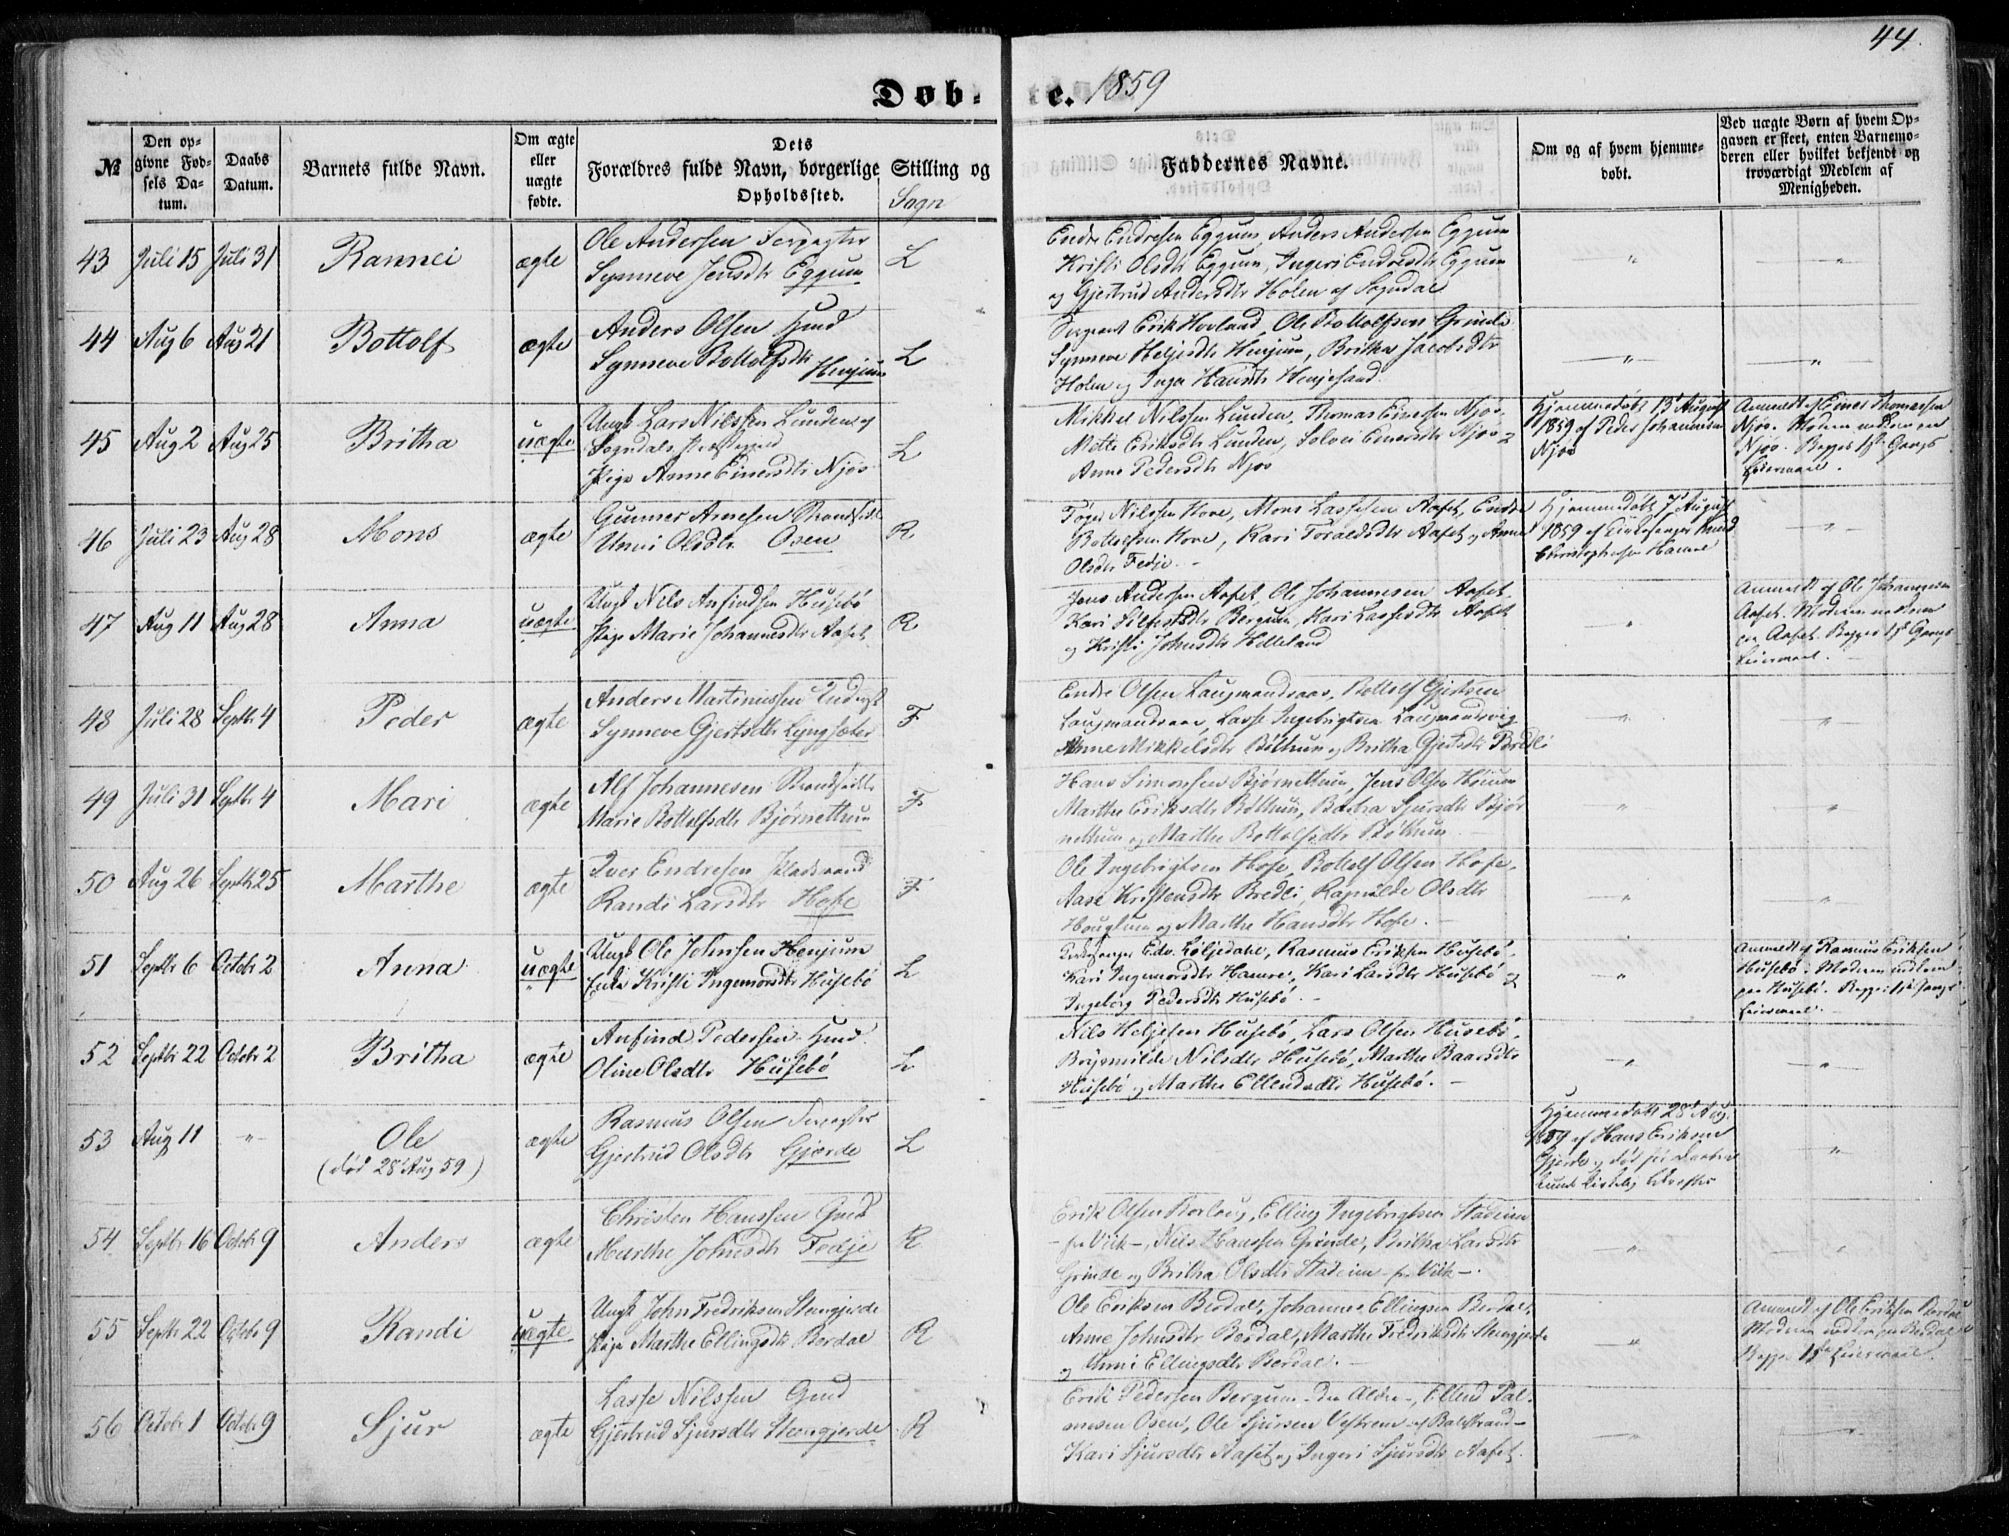 44.
Døbte. 1859
№
Den opgivne Fødsels Datum.
Daabs Datum.
Barnets fulde Navn.
Om ægte eller uægte fødte.
Dets Forældres fulde Navn, borgerlige Stilling og Opholdssted.
Sogn
Faddernes Navne.
Om og af hvem hjemmedøbt.
Ved uægte Børn af hvem Opgaven er skeet, enten Barnemoderen eller hvilket bekjendt og troværdigt Medlem af Menigheden.
43 Juli 15 Juli 31 Rannei ægte
Ole Andersen Forpagter
Synneve Jensdtr Eggum
L
Endre Endresen Eggum, Anders Andersen Eggum
Kristi Olsdtr Eggum, Ingeri Endresdtr Eggum
og Gjertrud Andersdtr Holen af Sogndal
44 Aug 6 Aug 21 Bottolf ægte
Anders Olsen Husmd
Synneve Bottolfsdtr
Henjum
L
Sergeant Erik Hovland, Ole Bottolfsen Grinde
Synneve Heljesdtr Henjum, Britha Jacobsdtr
Holen og Inga Hansdtr Henjesand.
45 Aug 2 Aug 25 Britha uægte
Ungk Lars Nilssen Lunden af
Sogndals Præstegjeld
Pige Anne Einersdtr Njøs
L
Mikkel Nilssen Lunden, Thomas Einersen Njøs,
Mette Eriksdtr Lunden, Solvei Einersdtr Njøs og
Anne Pedersdtr Njøs
Hjemmedøbt 13 August
1859 af Peder Johannesen
Njøs
Anmeldt af Einer Thomassen
Njøs. Moderen
Njøs. Begges 1ste Gangs
Leiermaal.
46 Juli 23 Aug 28 Mons ægte
Gunner Arnesen Strandsidder
Unni Olsdtr Osen
R
Nilssen Hove, Mons Lassesen Aafet, Endre
Bottolfsen Hove, Kari Toraldsdtr Aafet og Anne
Olsdtr Fedje. –
Hjemmedøbt 7 August
1859 af Kirkesanger Knud
Christophersen Hamre
47 Aug 11 Aug 28 Anna uægte
Ungk Nils Anfindsen Husebø
Pige Marie Johannesdtr Aafet
R
Jens Andersen Aafet, Ole Johannesen Aafet,
Kari Bergum, Kari Lassesdtr Aafet
og Kristi Johnsdtr Helleland
Anmeldt af Ole Johannesen
Aafet. Moderen
paa Aafet. Begges 1ste Gangs
Leiermaal. –
48 Juli 28 Septbr 4 Peder ægte
Anders Martinussen
Synneve Gjertsdtr Lyngsæter
F
Endre Olsen Laugmandsaas, Bottolf Gjertsen
Laugmandsaas, Lasse Ingebrigtsen Laugmandsvig
Anne Mikkelsdtr Bøthun og Britha Gjertsdtr Bredli
49 Juli 31 Septbr 4 Mari ægte
Alf Johannesen Strandsidder
Marie Bottolfsdtr Bjørnettun
F
Hans Simonsen Bjørnettun, Jens Olsen Høium
Marthe Eriksdtr Bøthun, Barbra Sjursdtr Bjør
nettun og Marthe Bottolfsdtr Bøthun
50 Aug 26 Septbr 25 Marthe ægte
Iver Endresen Pladsmand
Randi Larsdtr Hofe
F
Ole Ingebrigtsen Hofe, Bottolf Olsen Hofe,
Aase Kristensdtr Bredli, Ragnilde Olsdtr
Houglum og Marthe Hansdtr Hofe. –
51 Septbr 6 Octobr 2 Anna uægte
Ungk Ole Johnsen Henjum
Enke Kristi Ingemorsdtr Husebø
L
Kirkesanger Edv. Liljedahl, Rasmus Eriksen Husebø,
Kari Ingemorsdtr Hamre, Kari Larsdtr Husebø og
Ingeborg Pedersdtr Husebø. –
Anmeldt af Rasmus Eriksen
Husebø. Moderen
paa Husebø. Begges 1ste Gangs
Leiermaal. –
52 Septbr 22 Octobr 2 Britha ægte
Anfind Pedersen Husmd.
Oline Olsdtr Husebø
L
Nils Heljesen Husebø, Lars Olsen Husebø,
Brynnilde Nilsdtr Husebø, Marthe Baarsdtr
Husebø og Marthe Ellendsdtr Husebø. –
53 Aug 11 " Ole ægte
(død 28 Aug 59)
Rasmus Olsen Forpagter
Gjertrud Olsdtr Gjerde
L
Hjemmedøbt 28 Aug.
1859 af Hans Eriksen
Gjerde og død før Daaben
kunde kirkelig bekræftes
54 Septbr 16 Octobr 9 Anders ægte
Christen Hanssen Gmd
Marthe Johnsdtr Fedje
R
Erik Olsen Borlaug, Elling Ingebrigtsen Stadeim
– fra Vik –, Nils Hanssen Grinde, Britha Larsdtr
Grinde og Britha Olsdtr Stadeim – fra Vik –.
55 Septbr 22 Octobr 9 Randi uægte
Ungk John Fredriksen Stengjerde
Pige Marthe Ellingsdtr Berdal
R
Ole Eriksen Berdal, Johannes Ellingsen Berdal,
Anne Johnsdtr Berdal, Marthe Fredriksdtr Stengjerde
og Unni Ellingsdtr Berdal. –
Anmeldt af Ole Eriksen Berdal
Moderen Berdal
Begges 1ste Leiermaal.
56 Octobr 1 Octobr 9 Sjur ægte
Lasse Nilssen Gmd
Gjertrud Sjursdtr Stengjerde
R
Erik Pedersen Bergum – den Ældre –, Ellend Pal-
mesen Osen, Ole Sjursen Vestrem – af Balestrand –
Kari Sjursdtr Aafet og Ingeri Sjursdtr Aafet.